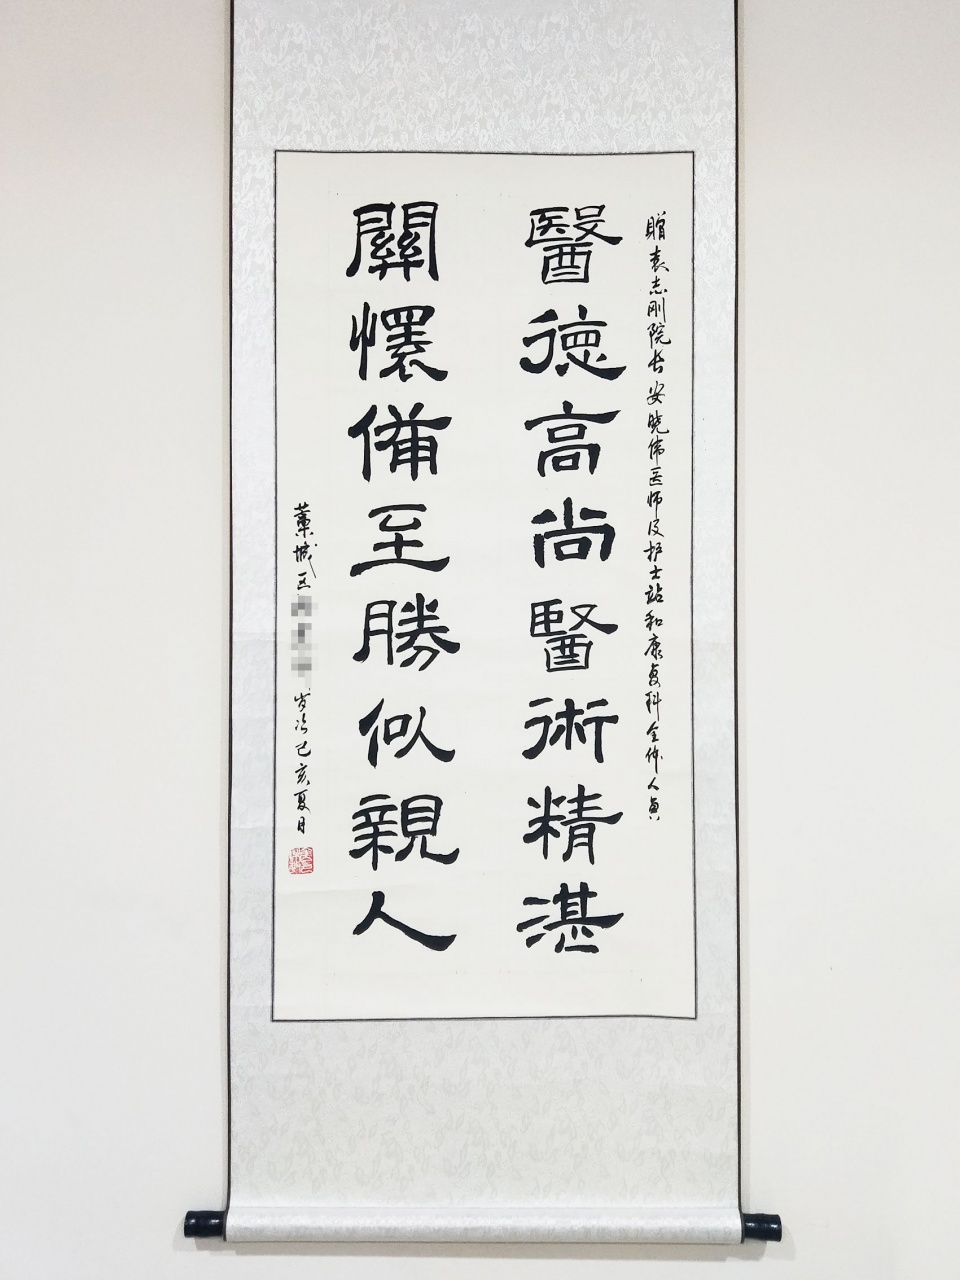 贈袁志刚院长安晓伟医师及护士站和康复科全体人員
醫德高尚醫術精湛
關懷備至勝似親人
藁城区
岁次己亥夏月